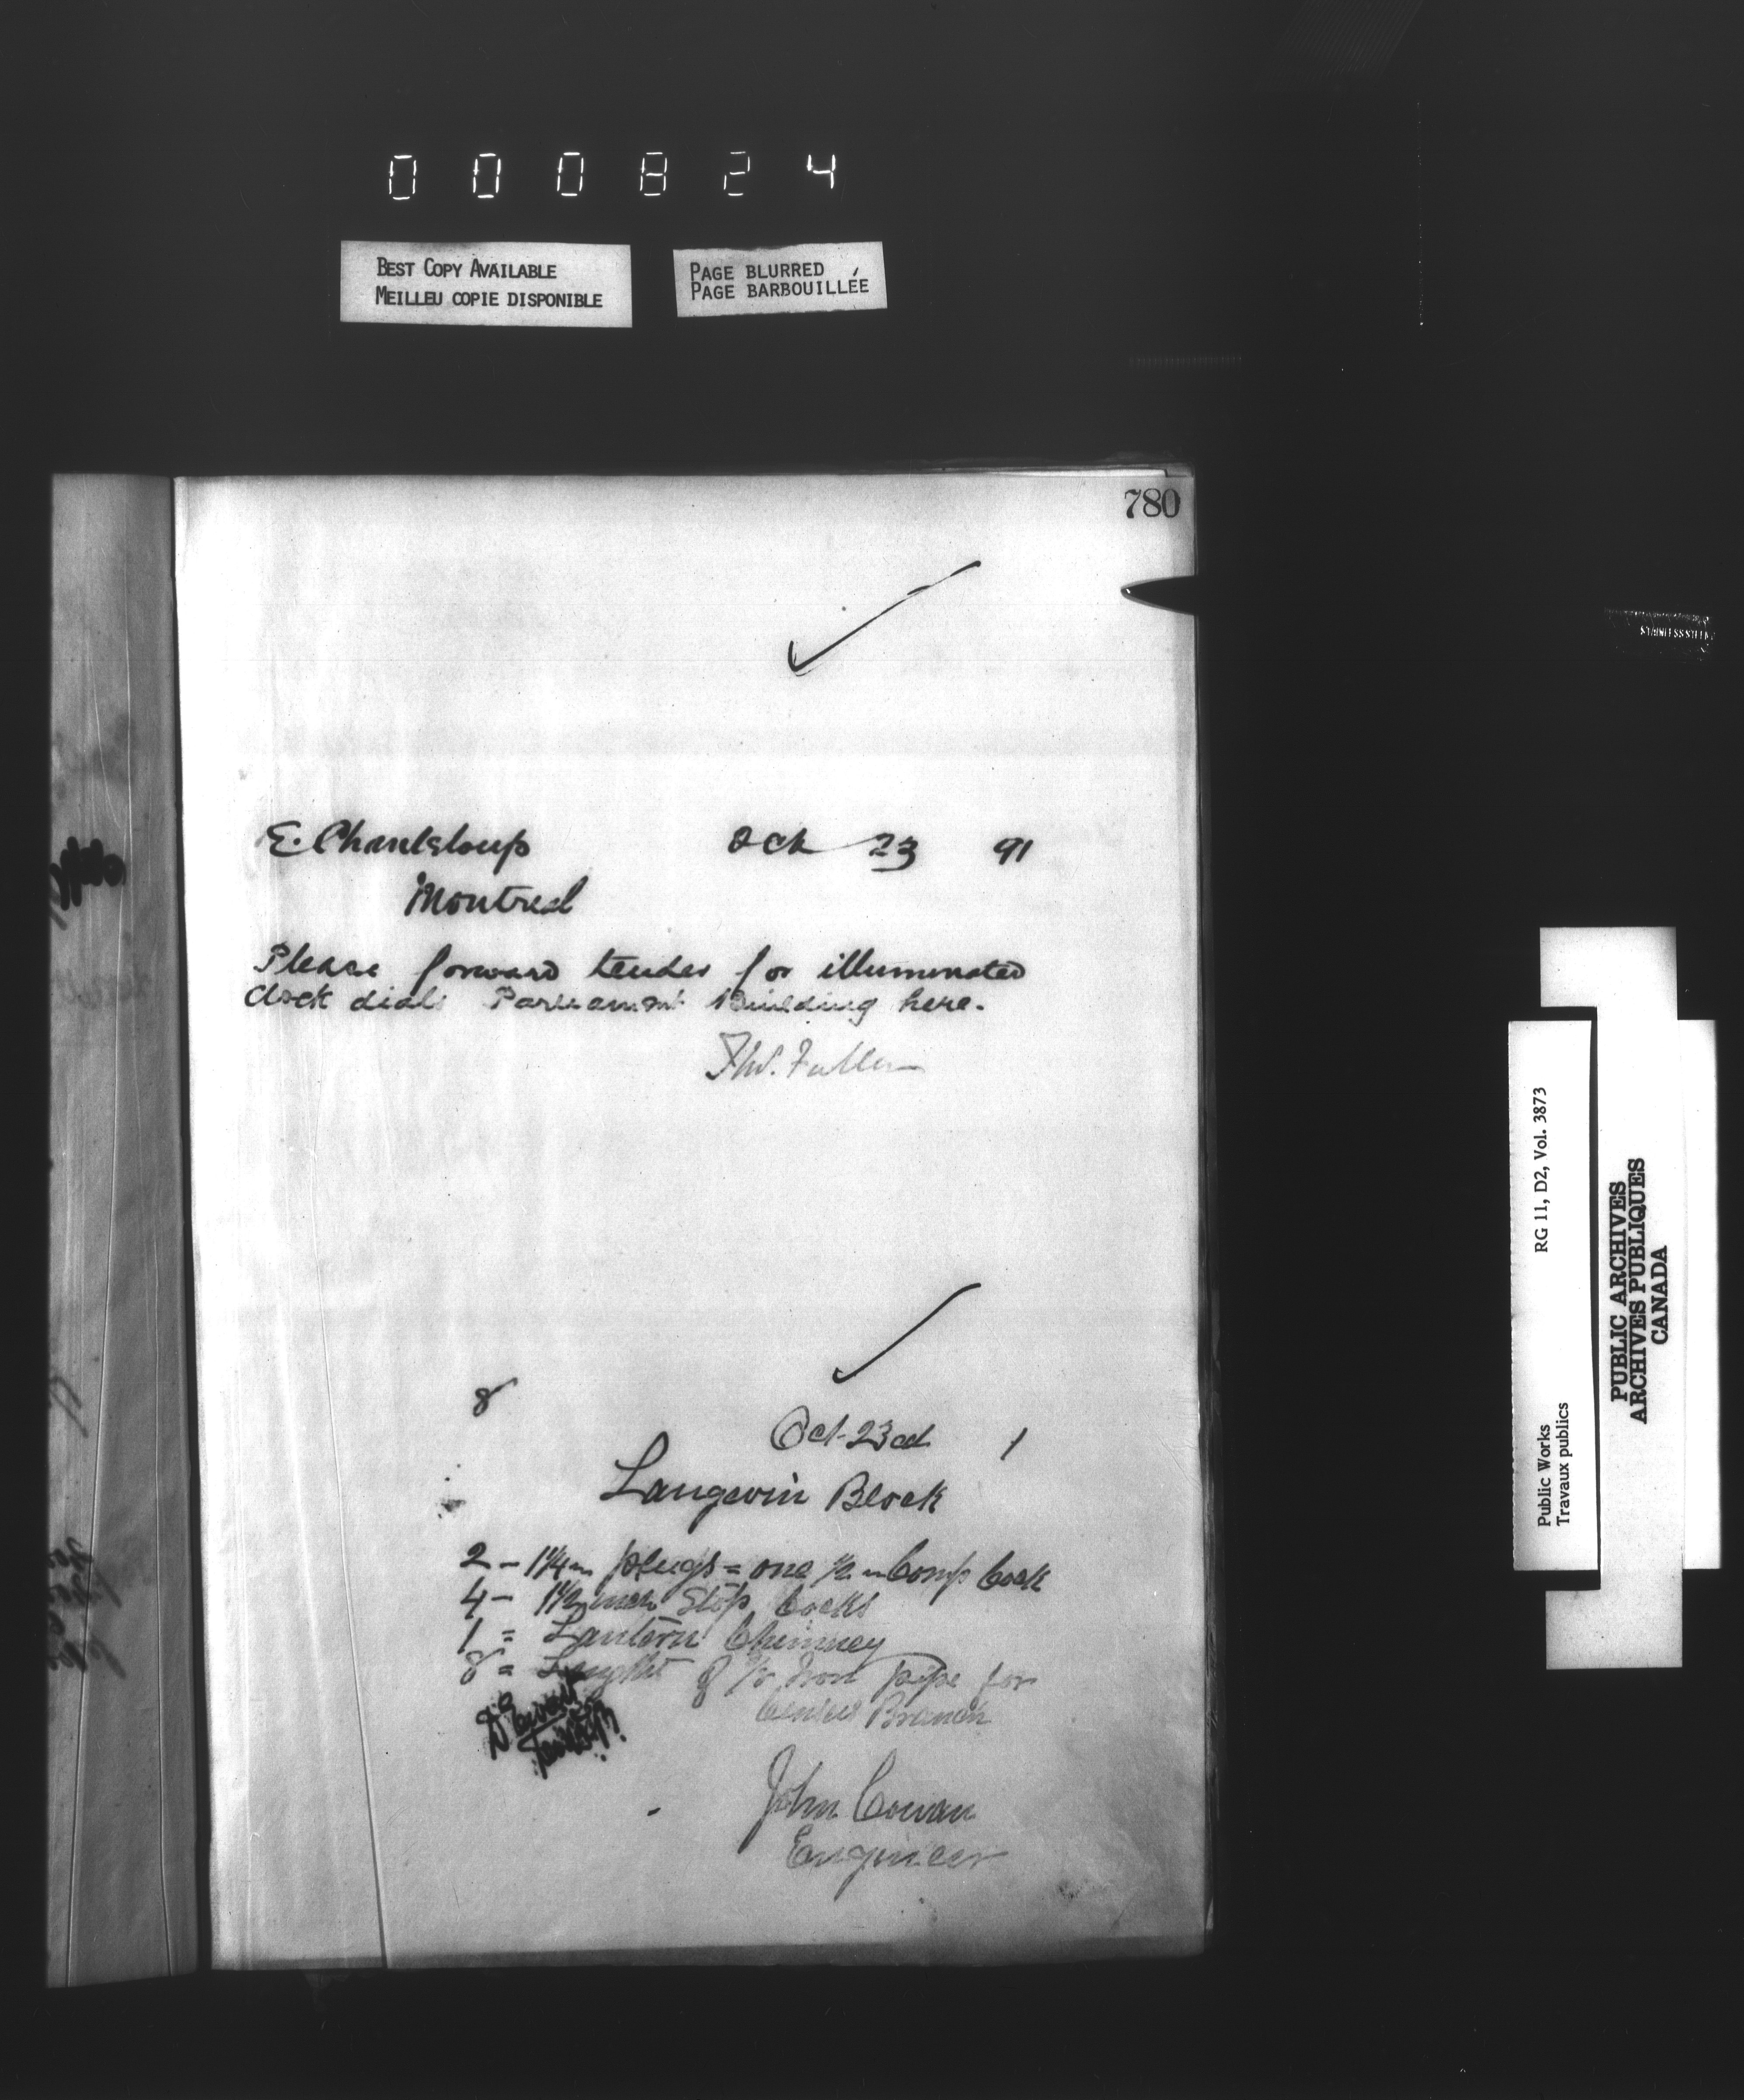 000824
BEST COPY AVAILABLE
MEILLEU COPIE DISPONIBLE
PAGE BLURRED
PAGE BARBOUILLÉE
780
E. Chanteloup Oct 23 91
Montreal
Please forward tender for illuminated
clock dials Parliament Building here.
Thos. Fuller
8
Oct 23rd 1
Langevin Block
2 - 1¼ in plugs = one ½ in Comp Cock
4 - 1½ inch Stop Cocks
1 = Lantern Chimney
8 = Lenght of Iron pipe for
Census Branch
John Cowan
Engineer
Public Works RG 11, D2, Vol. 3873
Travaux publics
PUBLIC ARCHIVES
ARCHIVES PUBLIQUES
CANADA